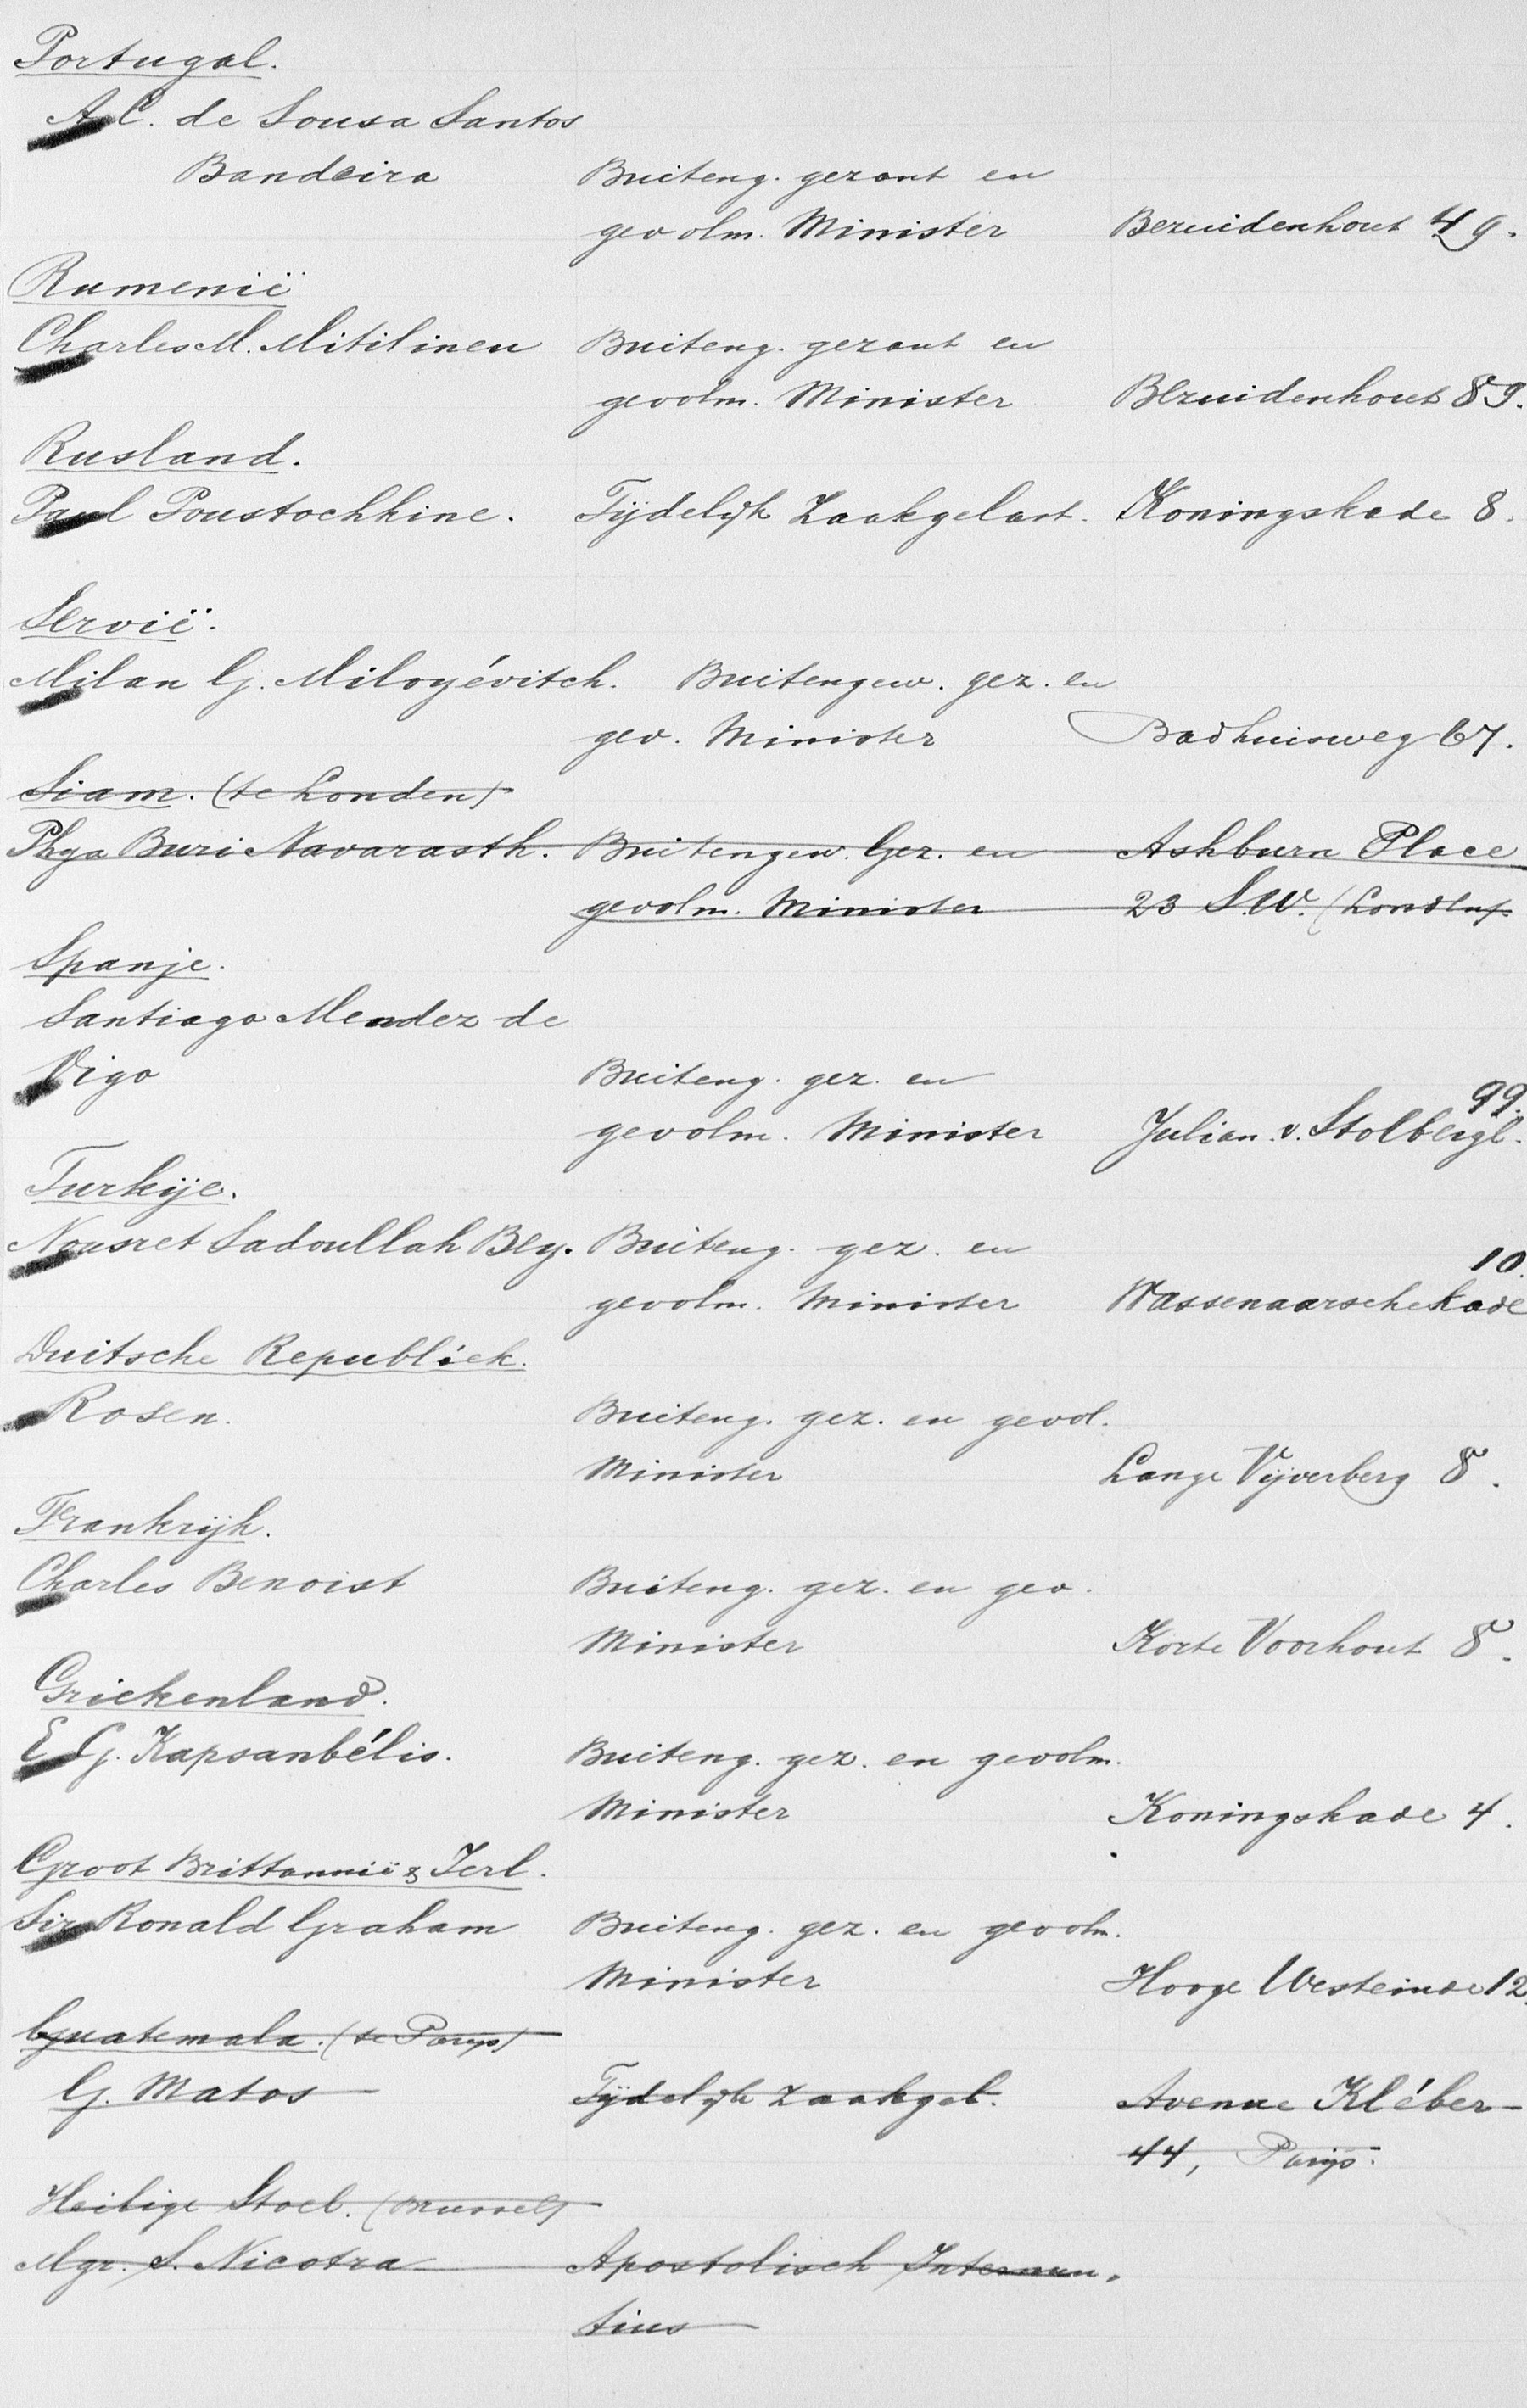 Portugal.
A.C. de Sousa Santos
Bandeira Buiteng. gezant en
gevolm. Minister Bezuidenhout 49.
Rumenië
Charles M. Mitilineu Buiteng. gezant en
gevolm. Minister Bezuidenhout 89.
Rusland.
Paul Poustochkine. Tijdelijk Zaakgelast. Koningskade 8.
Servië.
Milan G. Miloyévitch. Buitengew. gez. en
gev. Minister Badhuisweg 67.
Siam. (te Londen)
Phya Buri Navarasth. Buitengew. Gez. en Ashburn Place
gevolm. Minister 23 S.W. (Londen)
Spanje.
Santiago Mendez de
Vigo Buiteng. gez. en
gevolm. Minister Julian. v. Stolbergl. 99.
Turkije.
Nousret Sadoullah Bey. Buiteng. gez. en
gevolm. Minister Wassenaarschekade 10.
Duitsche Republiek.
Rosen. Buiteng. gez. en gevol.
Minister Lange Vijverberg 8.
Frankrijk.
Charles Benoist Buiteng. gez. en gev.
Minister Korte Voorhout 8.
Griekenland.
E G. Kapsanbélis. Buiteng. gez. en gevolm.
Minister Koningskade 4.
Groot Brittannië & Ierl.
Sir Ronald Graham Buiteng. gez. en gevolm.
Minister Hooge Westeinde 12.
Guatemala. (te Parijs)
G. Matos Tijdelijk zaakgel. Avenue Kléber
44, Parijs.
Heilige Stoel. (Brussel)
Mgr. S. Nicotra Apostolisch Internun-
tius